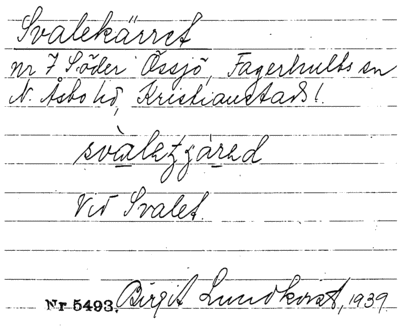 Svalekärret
nr 7 Söder Össjö, Fagerhults sn
N. Åsbo hd, Kristianstads l.
Vid Svalet.
Nr 5493. Birgit Lundkvist, 1939.